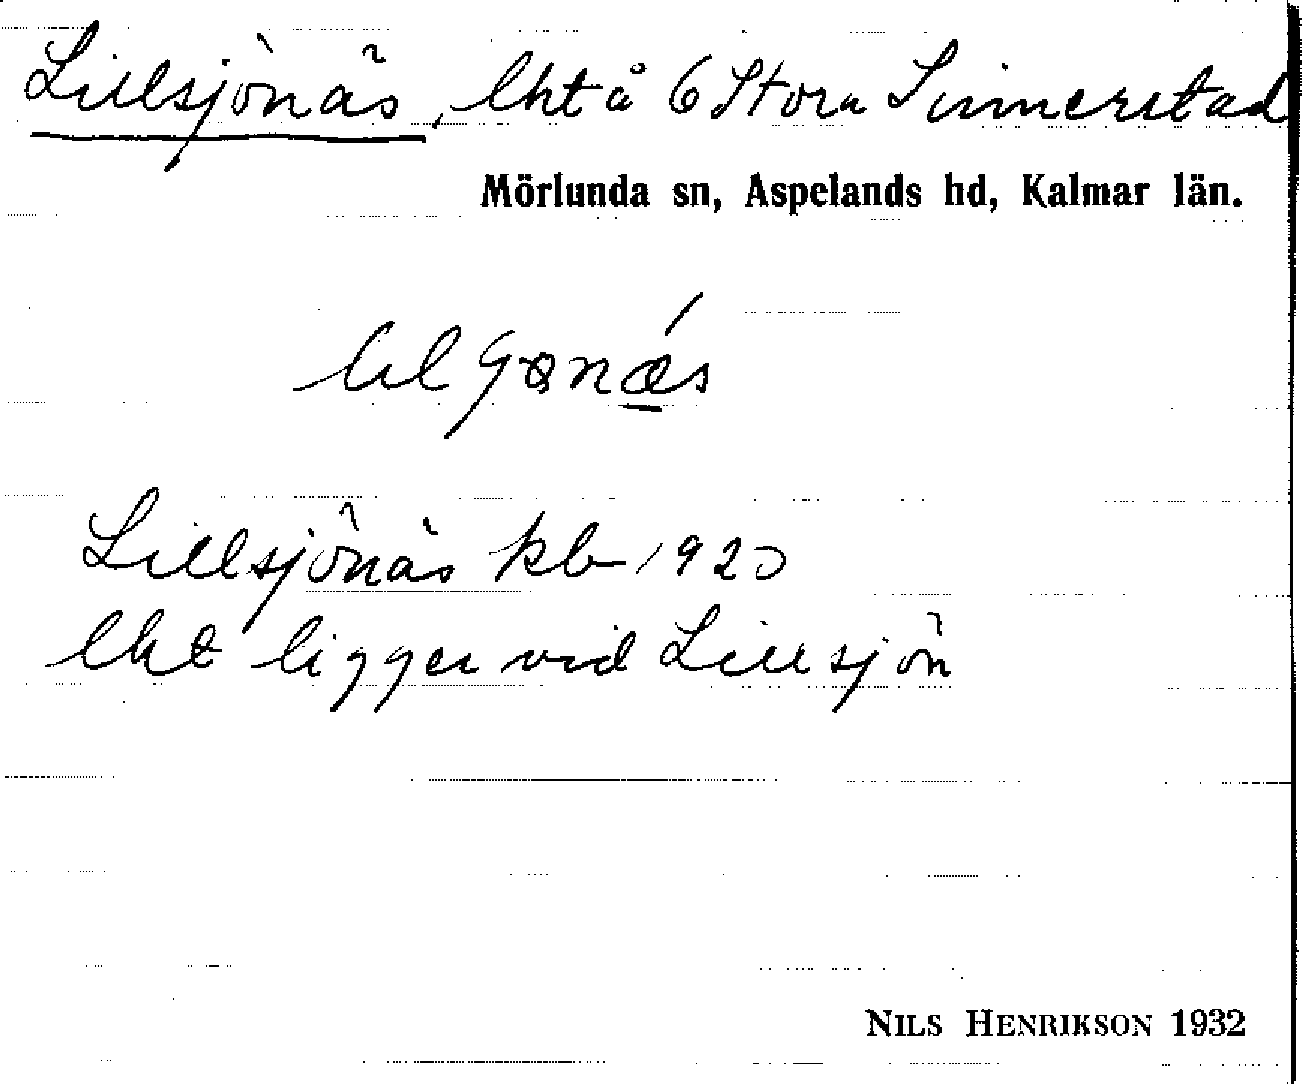 Lillsjönäs, lht å 6 Stora Sinnerstad
Mörlunda sn, Aspelands hd, Kalmar län.
Lillsjönäs kb 1920
lht ligger vid Lillsjön
NILS HENRIKSON 1932